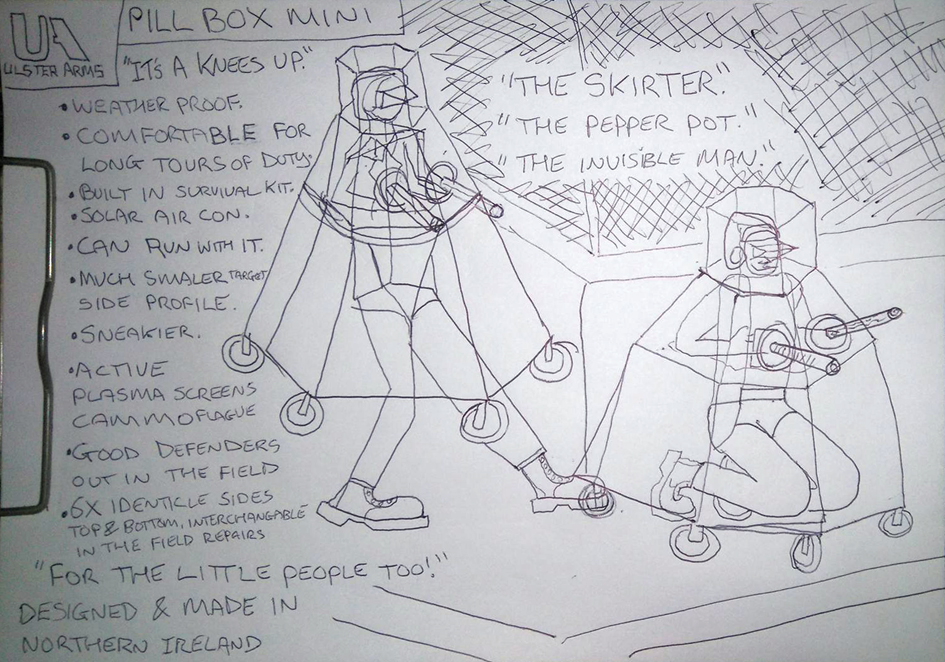 UA
ULSTER ARMS
PILL BOX MINI
"IT'S A KNEES UP."
• WEATHER PROOF.
• COMFORTABLE FOR
LONG TOURS OF DUTY.
• BUILT IN SURVIVAL KIT.
• SOLAR AIR CON.
• CAN RUN WITH IT.
• MUCH SMALER TARGET
SIDE PROFILE.
• SNEAKIER.
• ACTIVE
PLASMA SCREENS
CAMMOFLAGUE
• GOOD DEFENDERS
OUT IN THE FIELD
• 6X IDENTICLE SIDES
TOP & BOTTOM, INTERCHANGABLE
IN THE FIELD REPAIRS
"FOR THE LITTLE PEOPLE TOO!"
DESIGNED & MADE IN
NORTHERN IRELAND
"THE SKIRTER."
"THE PEPPER POT."
"THE INVISIBLE MAN."